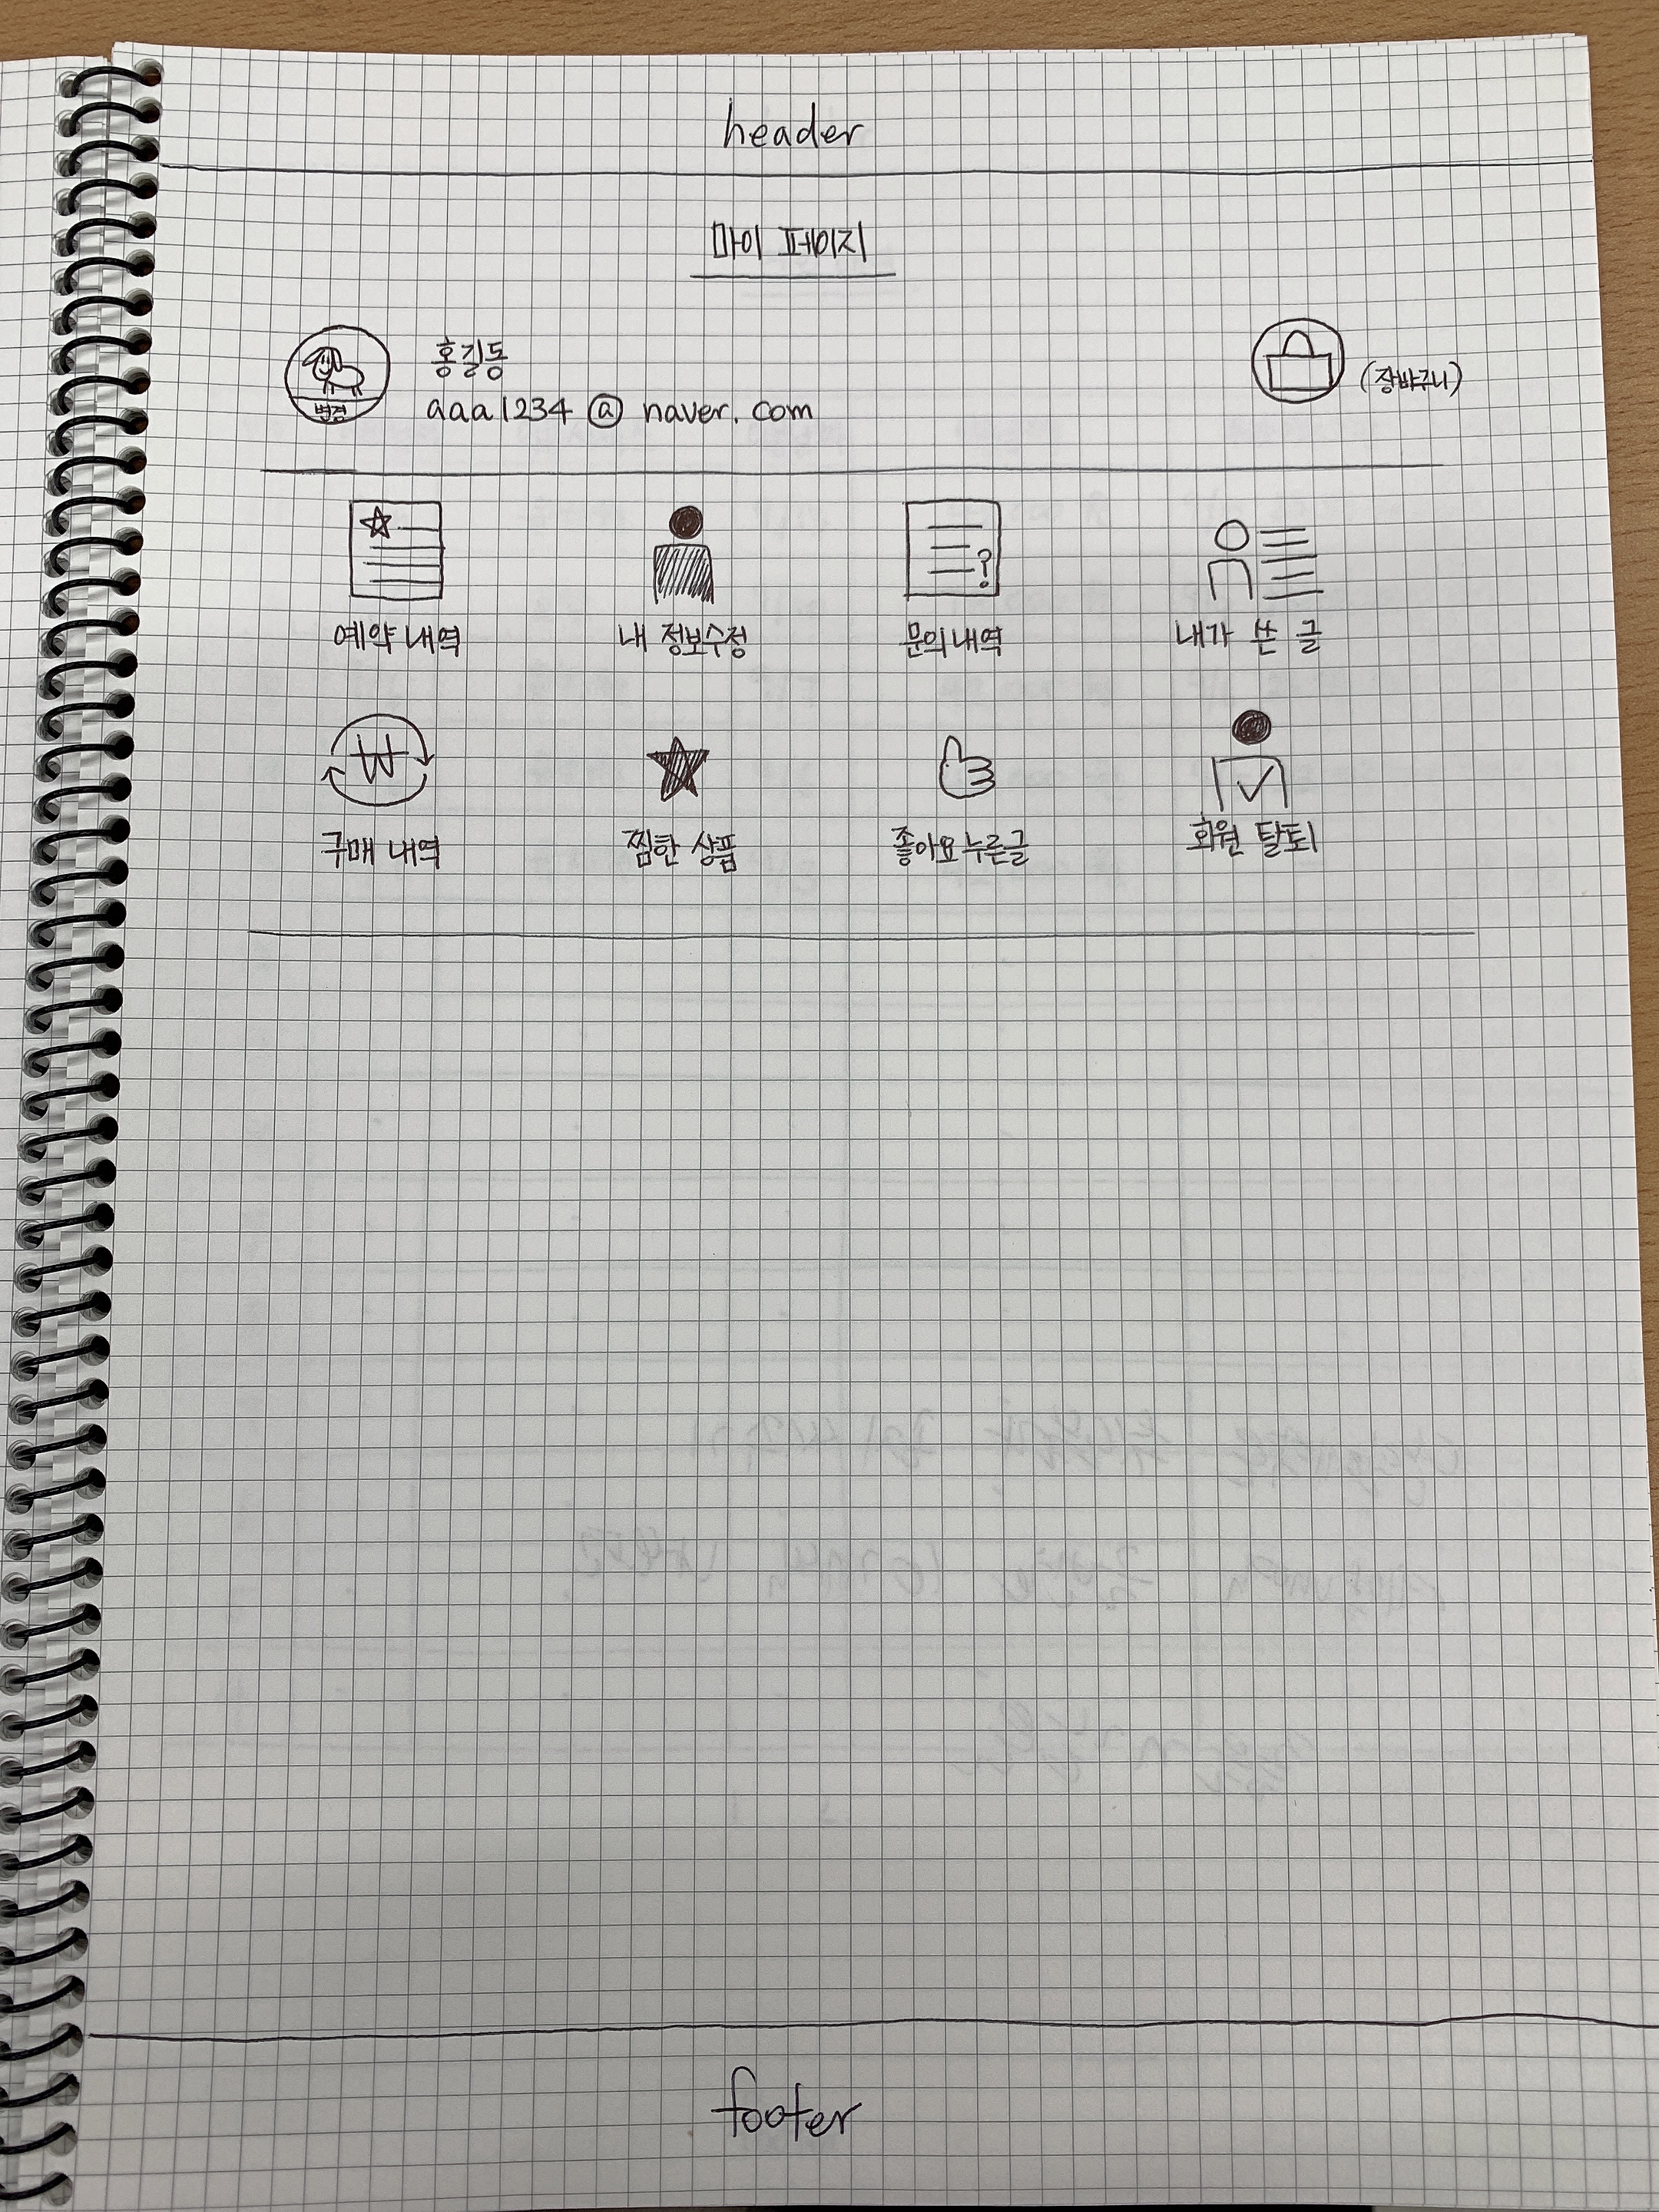 header
마이 페이지
홍길동
변경
aaa1234@naver.com
(장바구니)
?
예약 내역 내 정보수정 문의내역 내가 쓴 글
₩
구매 내역 찜한 상품 좋아요누른글 회원 탈퇴
footer